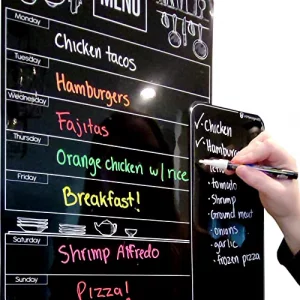 MENU
Monday
Chicken tacos
Tuesday
Hamburgers
Wednesday
Fajitas
Thursday
Orange chicken w/rice
Friday
Breakfast!
Saturday
Shrimp Alfredo
Sunday
Pizza!
✓-Chicken
✓-Hamburger
- tomato
- Shrimp
- Ground meat
- onions
- garlic
- frozen pizza